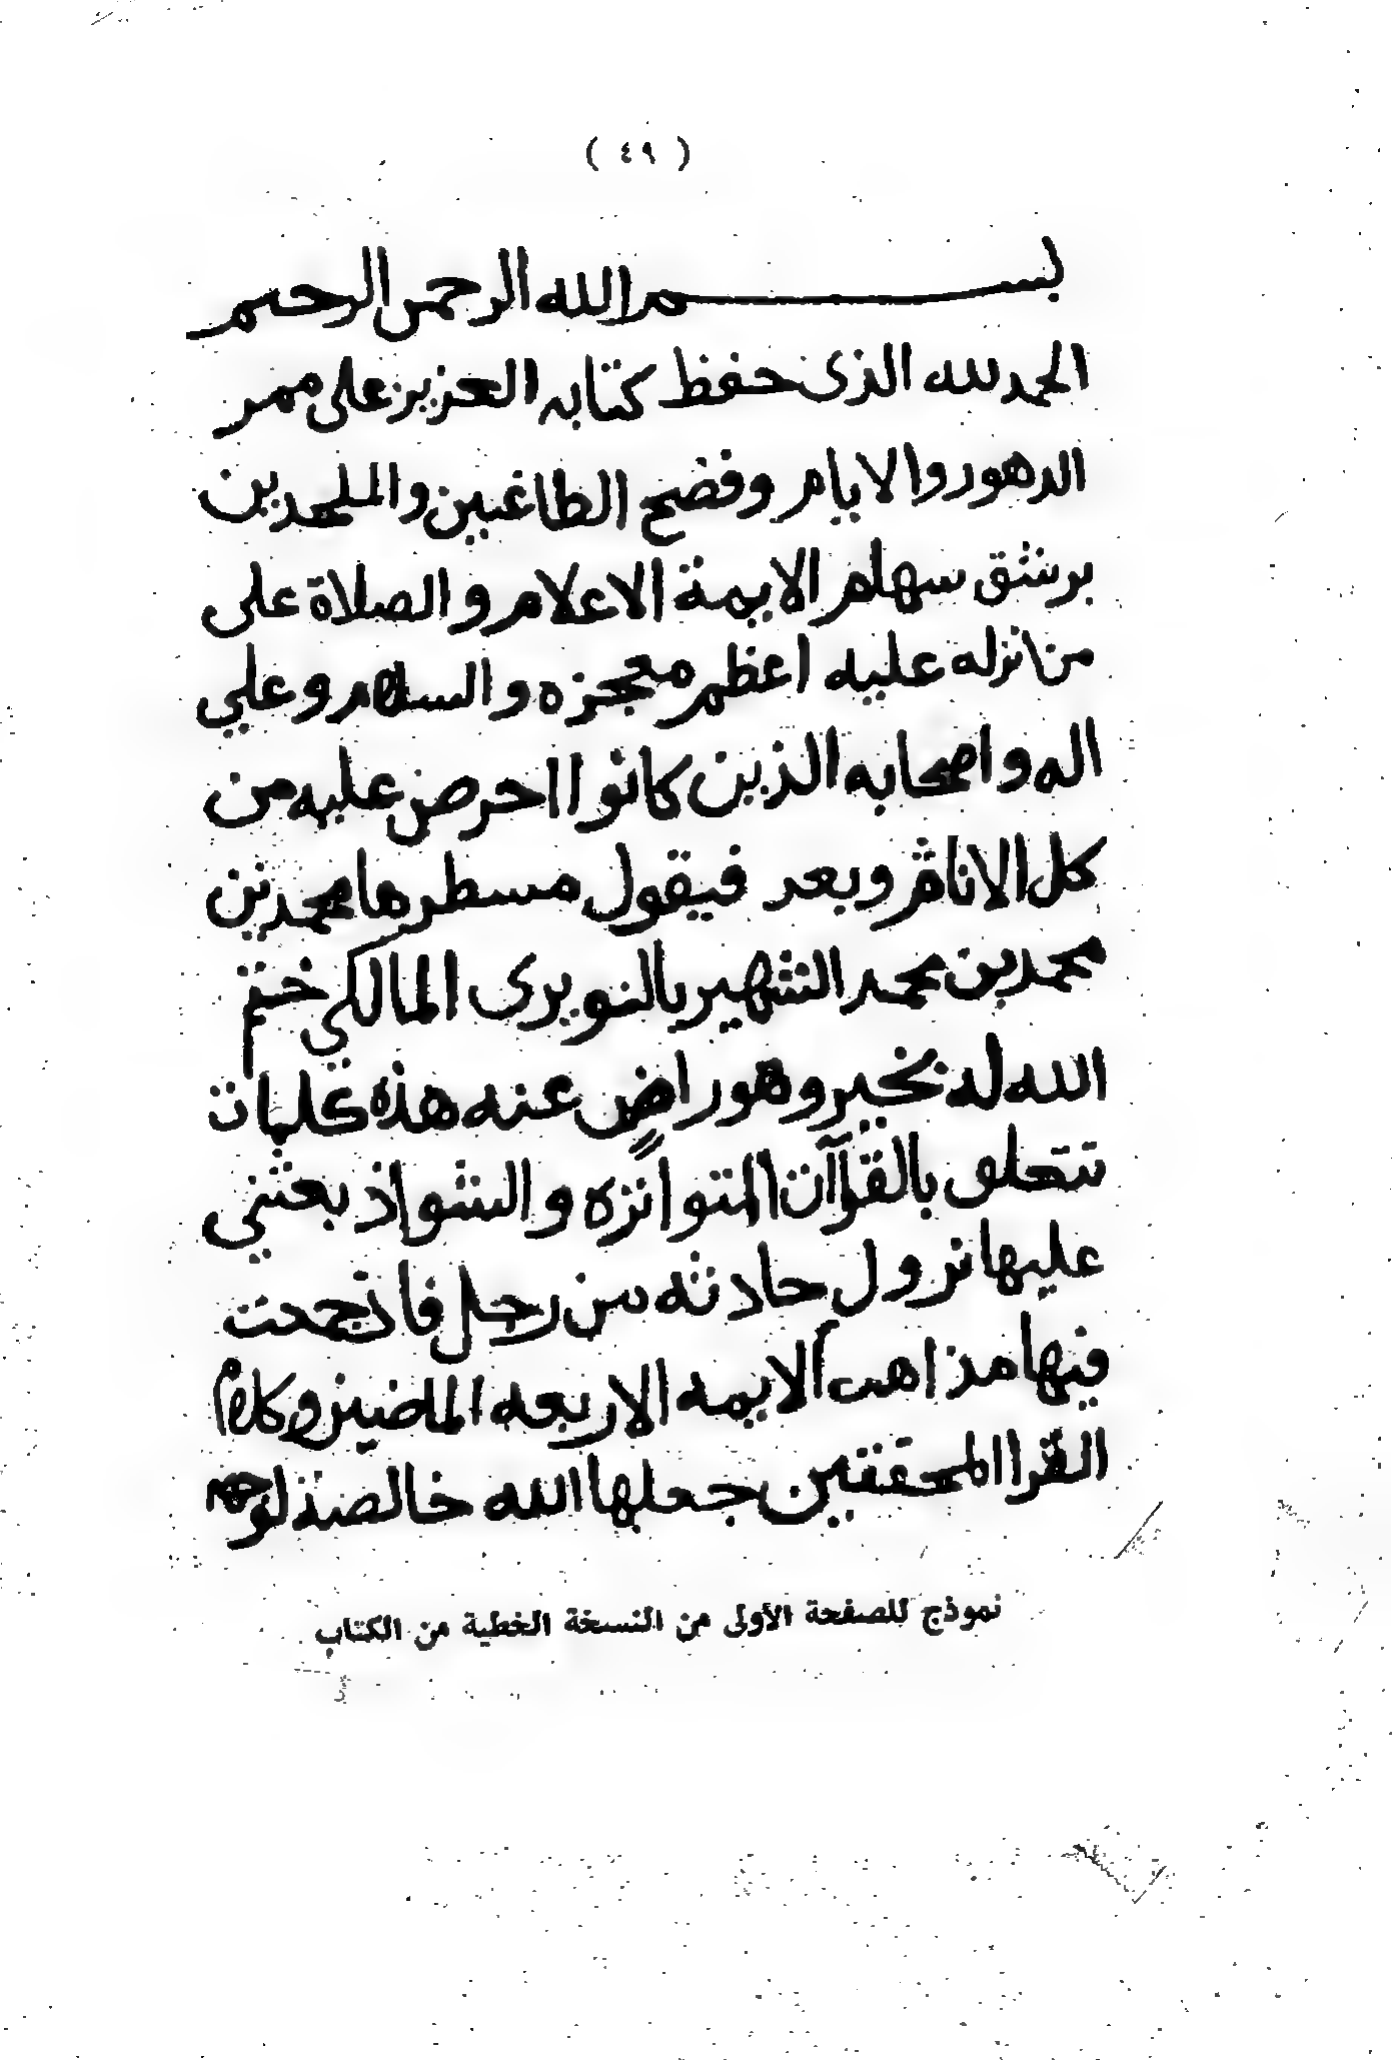 ( ٤٩ )
بسم الله الرحمن الرحيم
الحمد لله الذى حفظ كتابه العزيز على ممر
الدهور والايام وفضح الطاغين والملحدين
برشق سهام الايمة الاعلام والصلاة على
من انزله عليه اعظم معجزه والسلام وعلي
اله واصحابه الذين كانوا احرص عليه من
كل الانام وبعد فيقول مسطرها محمد بن
محمد بن محمد الشهير بالنويرى المالكي ختم
الله له بخير وهو راضٍ عنه هذه كلمات
تتعلق بالقرآن المتواتره والشواذ بعثني
عليها نزول حادثه من رجل فاذ جمعت
فيها مذاهب الايمه الاربعه الماضين وكلام
القرا المحققين جعلها الله خالصة لوجهه
نموذج للصفحة الأولى من النسخة الخطية من الكتاب